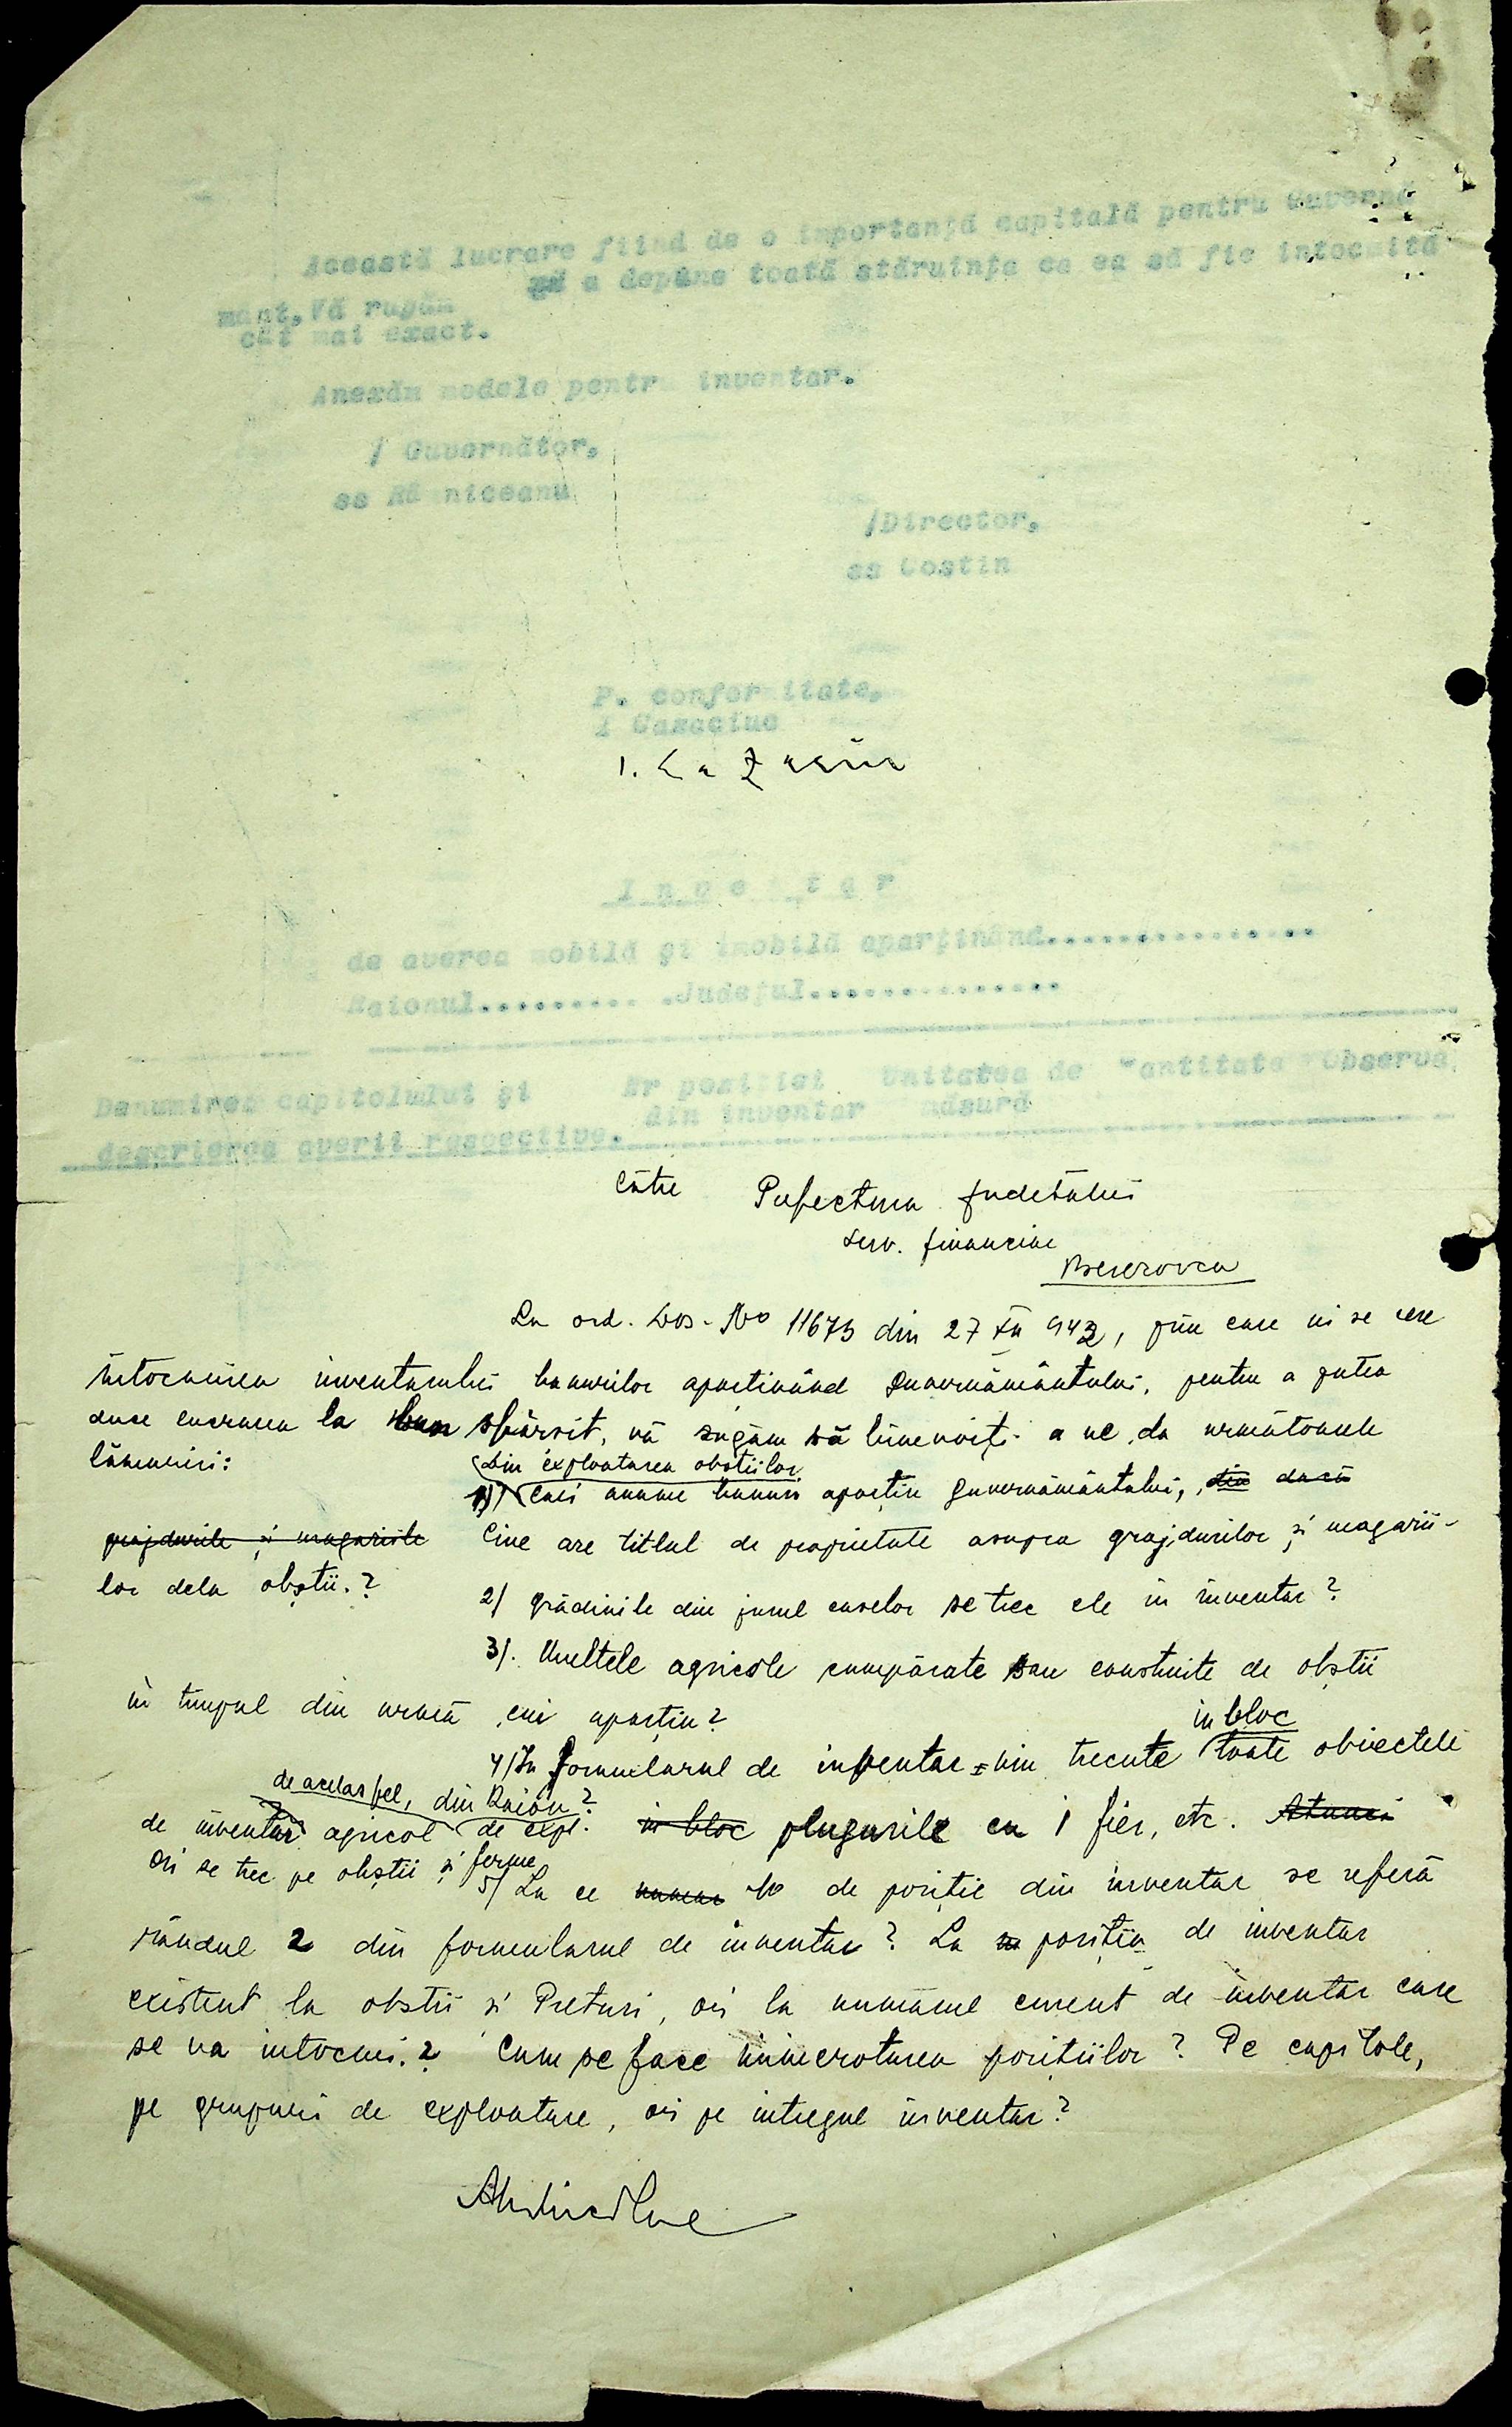 Această lucrare fiind de o importanță capitală pentru Guvernă
mânt, Vă rugăm a depune toată stăruința ca ea să fie intocmită
cât mai exact.
Anexăm modele pentru inventar.
/ Guvernător,
ss
/Director,
ss Costin
P. conformitate,
I Cazaciuc
Inventar
de averea mobilă și imobilă aparținând................
Raionul......... .Județul...............
Denumirea capitolului și Nr poziției Unitatea de Cantitate Observa
descrierea averii respective. din inventar măsură
Către Prefectura Județului
Serv. financiar
Berezovca
La ord. Dvs. No 11673 din 27 XII 943, prin care ni se cere
întocmirea inventarului bunurilor aparținând Guvernământului, pentru a putea
duce lucrarea la bun sfârsit, vă rugăm să binevoiți a ne da următoarele
lămuriri:
din exploatarea obstiilor
1)/ Cari anume bunuri aparțin guvernământului, din dacă
grajdurile și magaziile Cine are titlul de proprietate asupra grajdurilor și magazii-
lor dela obștii.?
2/ grădinile din jurul caselor se trec ele in inventar?
3/. Uneltele agricole cumpărate sau construite de obștii
in timpul din urmă cui aparțin?
in bloc
4/ In formularul de inventar vin trecute toate obiectele
de acelas fel, din Raion?
de inventar agricol de expl. in bloc plugurile cu 1 fier, etc. Atunci
Ori se trec pe obștii și ferme
5/ La ce numar No de poziție din inventar se referă
rândul 2 din formularul de inventar? La poziția de inventar
existent la obstii si Preturi, ori la numărul curent de inventar care
se va intocmi.? Cum se face numerotarea pozițiilor? Pe capitole,
pe grupuri de exploatare, ori pe intregul inventar?